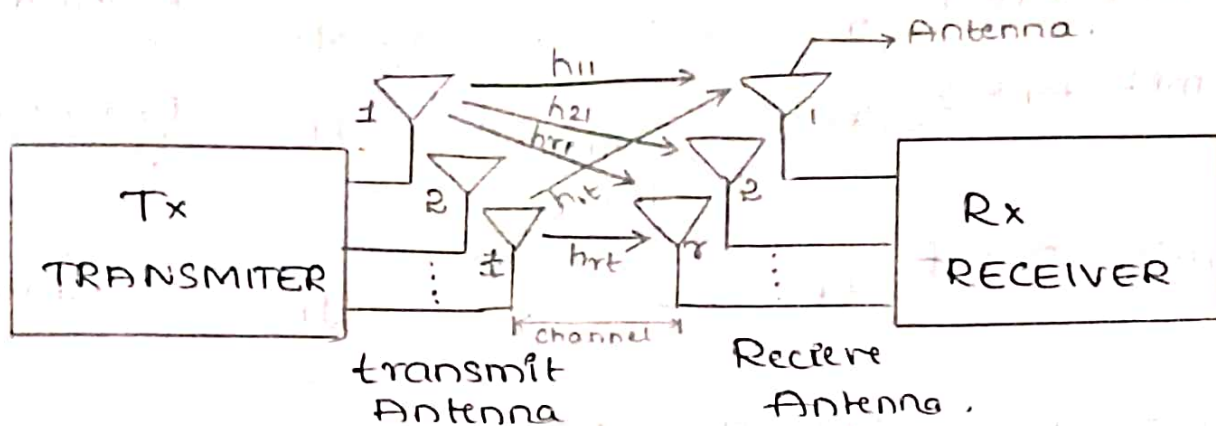 Antenna.
h11
1
h21
1
hr1
2
h1t
2
t
hrt
r
Tx
TRANSMITER
Rx
RECEIVER
channel
transmit
Antenna
Reciere
Antenna.